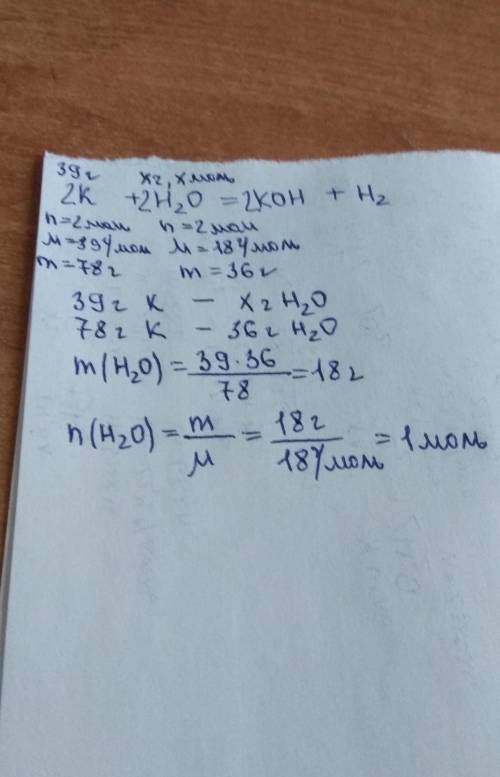 39г хг, х моль
2K + 2H₂O = 2KOH + H₂
n=2моль n=2моль
M=39г/моль M=18г/моль
m=78г m=36г
39г K – хг H₂O
78г K – 36г H₂O
m(H₂O) = 39·36/78 = 18г
n(H₂O) = m/M = 18г/18г/моль = 1моль